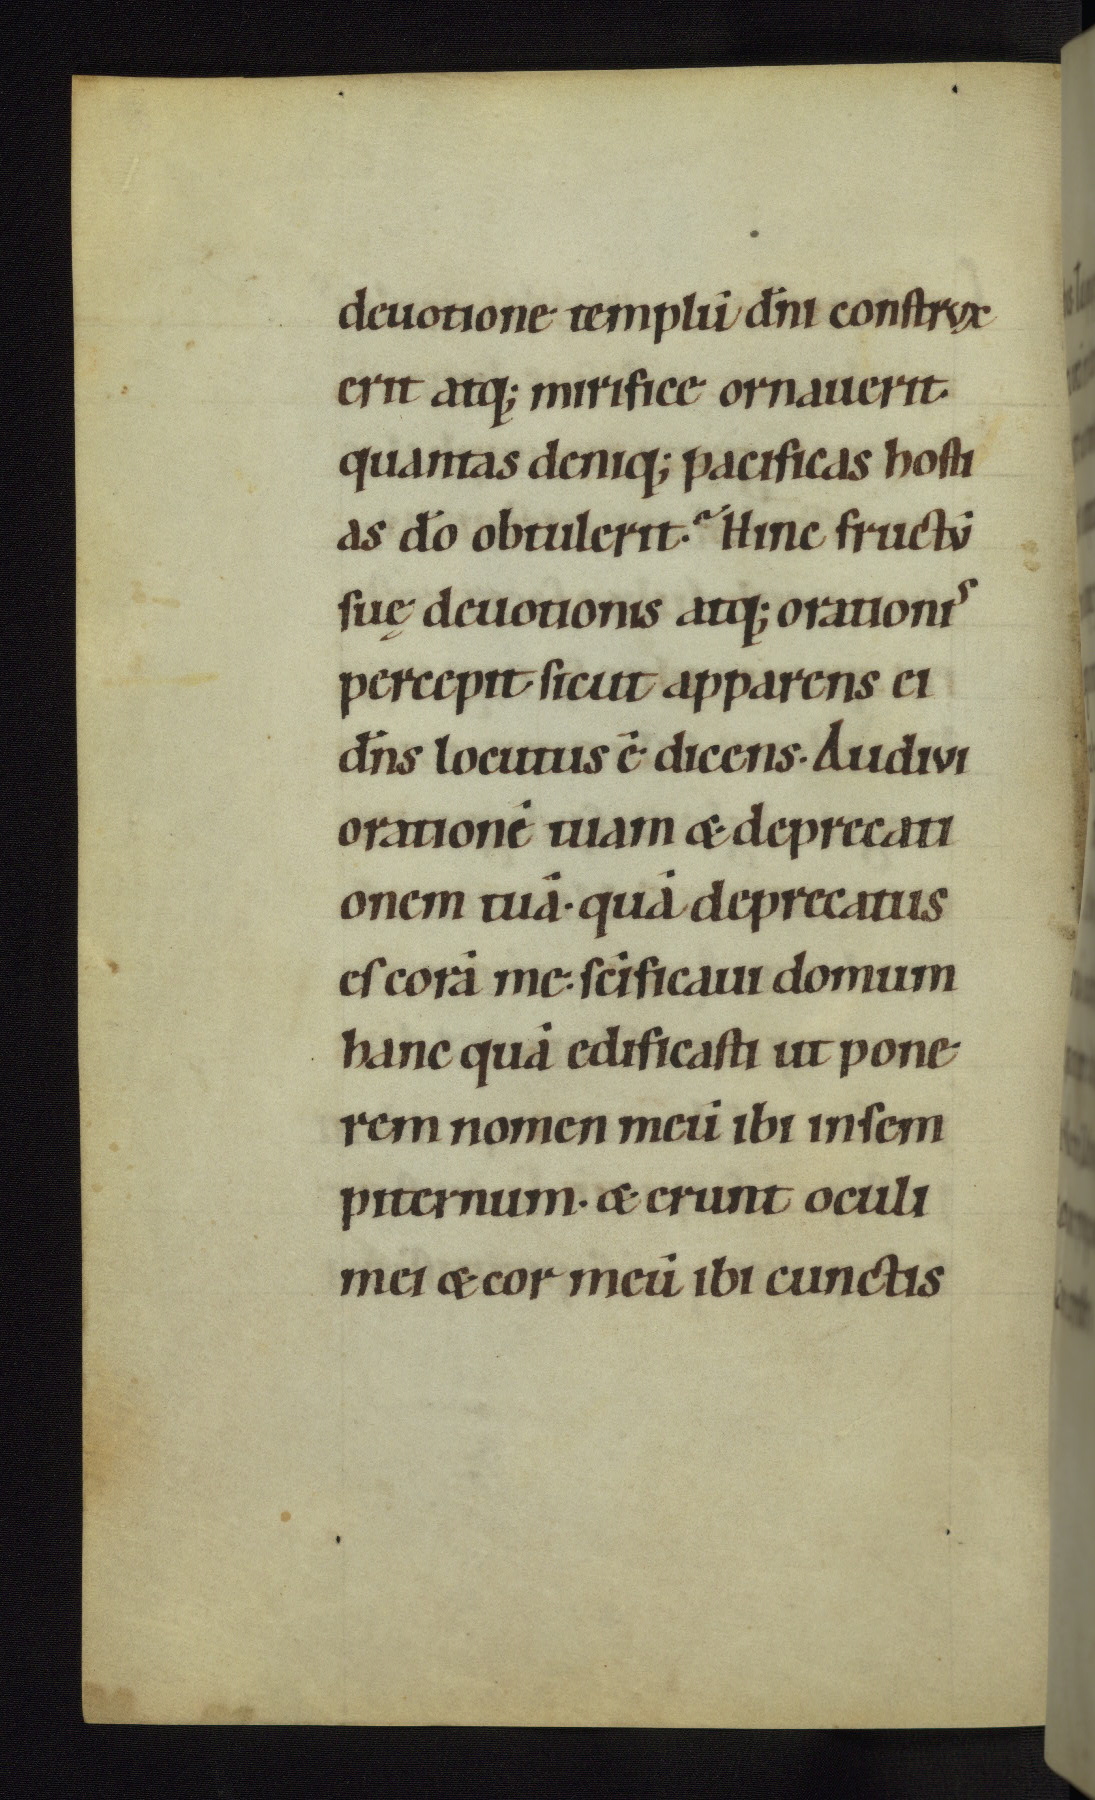 deuotione templū dn̄i construx
erit atq; mirifice ornauerit·
quantas deniq; pacificas hosti
as dō obtulerit? Hinc fructū
suę deuotionis atq; orationis
percepit· sicut apparens ei
dn̄s locutus ē dicens· Audivi
orationē tuam & deprecati
onem tuā· quā deprecatus
es corā me· sc̄ificaui domum
hanc quā edificasti ut pone
rem nomen meū ibi in sem
piternum· & erunt oculi
mei & cor meū ibi cunctis